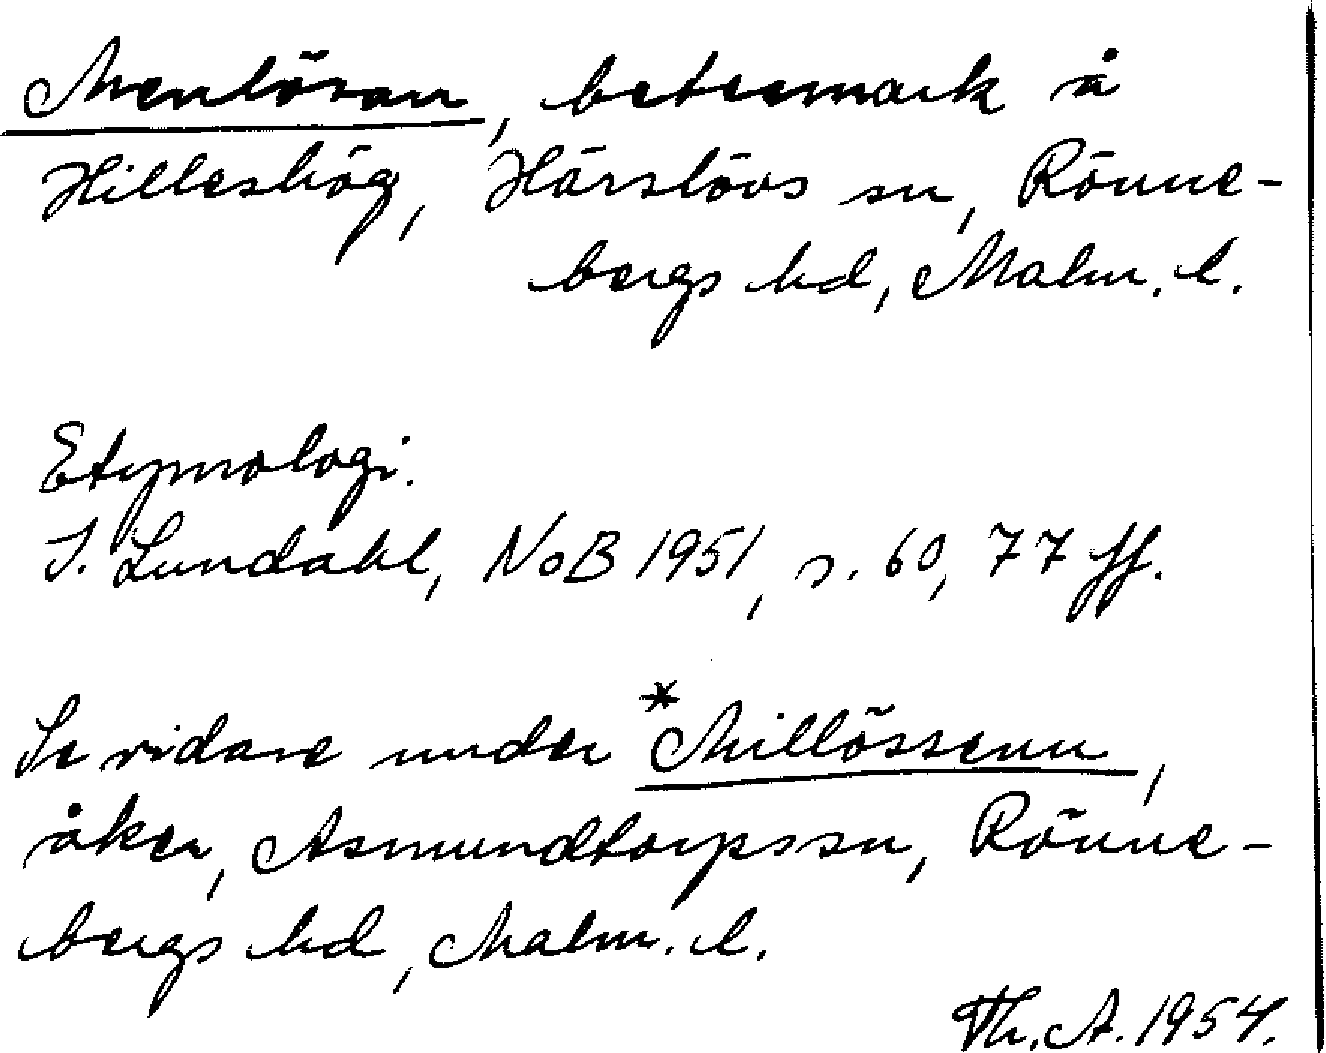 Menlösan, betesmark å
Hilleshög, Härslövs sn, Rönne-
bergs hd, Malm. l.
Etymologi.
I. Lundahl, NoB 1951, s. 60, 77 ff.
Se vidare under *Millössenn,
åker, Asmundtorps sn, Rönne-
bergs hd, Malm. l.
Th. A. 1954.